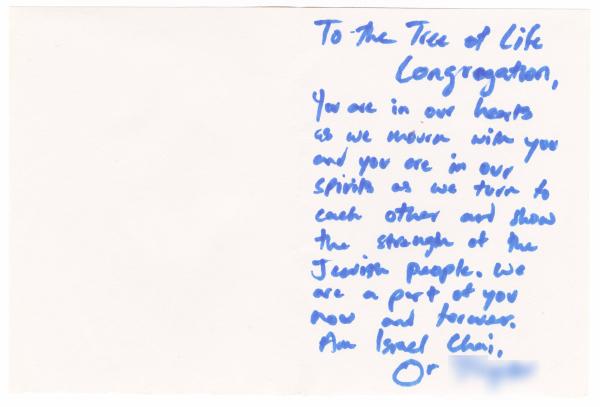 To the Tree of Life
Congregation,
You are in our hearts
as we mourn with you
and you are in our
spirits as we turn to
each other and show
the strength of the
Jewish people. We
are a part of you
now and forever.
Am Israel Chai,
Or